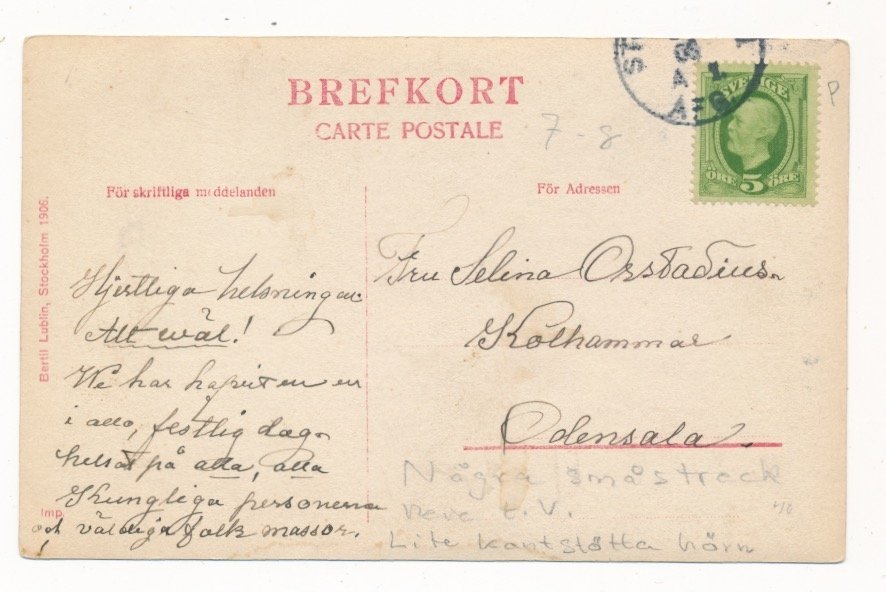 BREFKORT
CARTE POSTALE
7-8
P
SVERIGE
ÖRE 5 ÖRE
För skriftliga meddelanden
För Adressen
Bertil Lublin, Stockholm 1906.
Hjertliga helsningar.
Allt wäl!
We har haft en
i allo, festlig dag
helsat på alla, alla
Kungliga personerna
och väldiga folk massor.
Imp.
Fru Selina Orstadius
Kolhammar
Odensala.
Några småstreck
nere t.V.
Lite kantstötta hörn